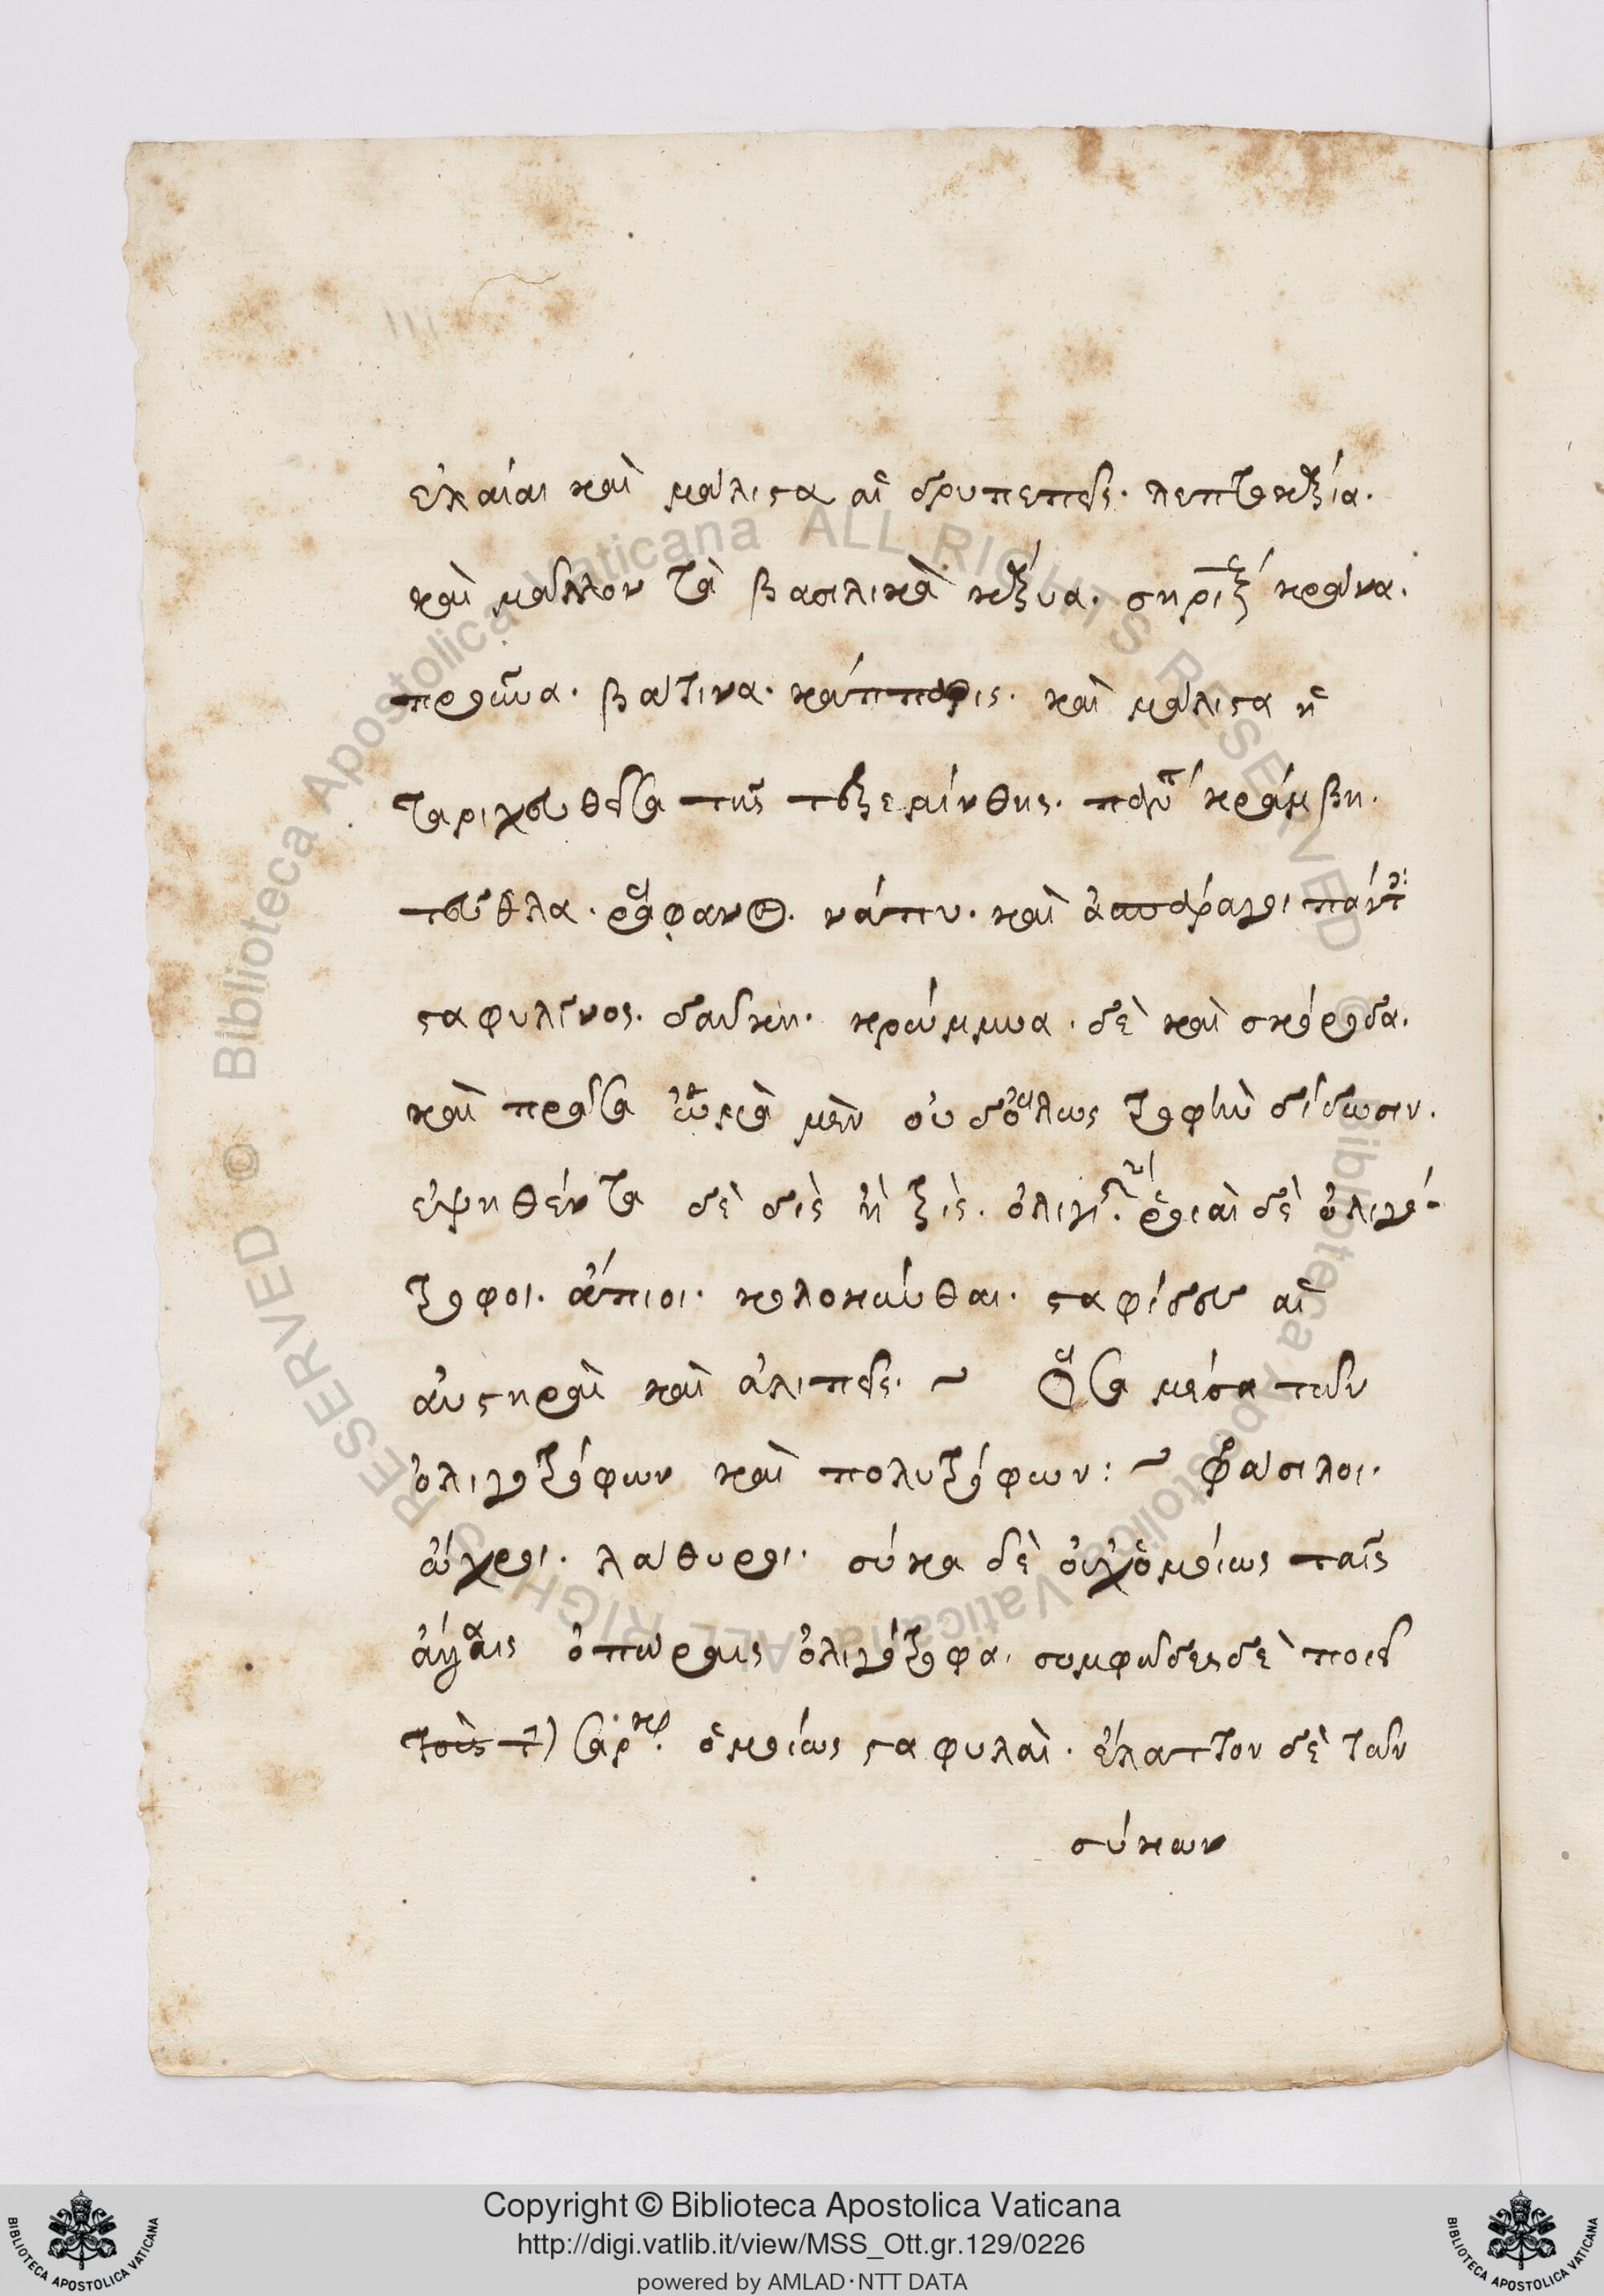 ἐλαίαι καὶ μάλιστα αἱ δρυπεπεῖς. λεπτοκάρυα.
καὶ μᾶλλον τὰ βασιλικὰ κάρυα. κράνα.
προῦνα. βάτινα. κάππαρις. καὶ μάλιστα ἡ
ταριχευθεῖσα τῆς τερεμίνθης. κράμβη.
σεῦτλα. ῥάφανος. νάπυ. καὶ ἀσπάραγοι πάντες
σταφυλῖνος. δαῦκη. κρόμμυα. δὲ καὶ σκόροδα.
καὶ πράσα ὠμὰ μὲν οὐδόλως τροφὴν δίδωσιν.
ἑψηθέντα δὲ δὶς ἢ τρὶς. ὀλίγην. ῥοιαὶ δὲ ὀλιγό-
τροφοι. ἄπιοι. κολοκύνθαι. σταφίδες αἱ
αὐστηραὶ καὶ ἀλιπεῖς. ~ Ὅσα μέσα τῶν
ὀλιγοτρόφων καὶ πολυτρόφων: ~ φάσιλοι.
ὦχροι. λάθυροι. σύκα δὲ οὐχ ὁμοίως ταῖς
ἄλλαις ὀπώραις ὀλιγότροφα. συμφώδεις δὲ ποιεῖ
τὰς σάρκας. ὁμοίως σταφυλαὶ. ἔλαττον δὲ τῶν
σύκων
Copyright © Biblioteca Apostolica Vaticana
http://digi.vatlib.it/view/MSS_Ott.gr.129/0226
powered by AMLAD·NTT DATA